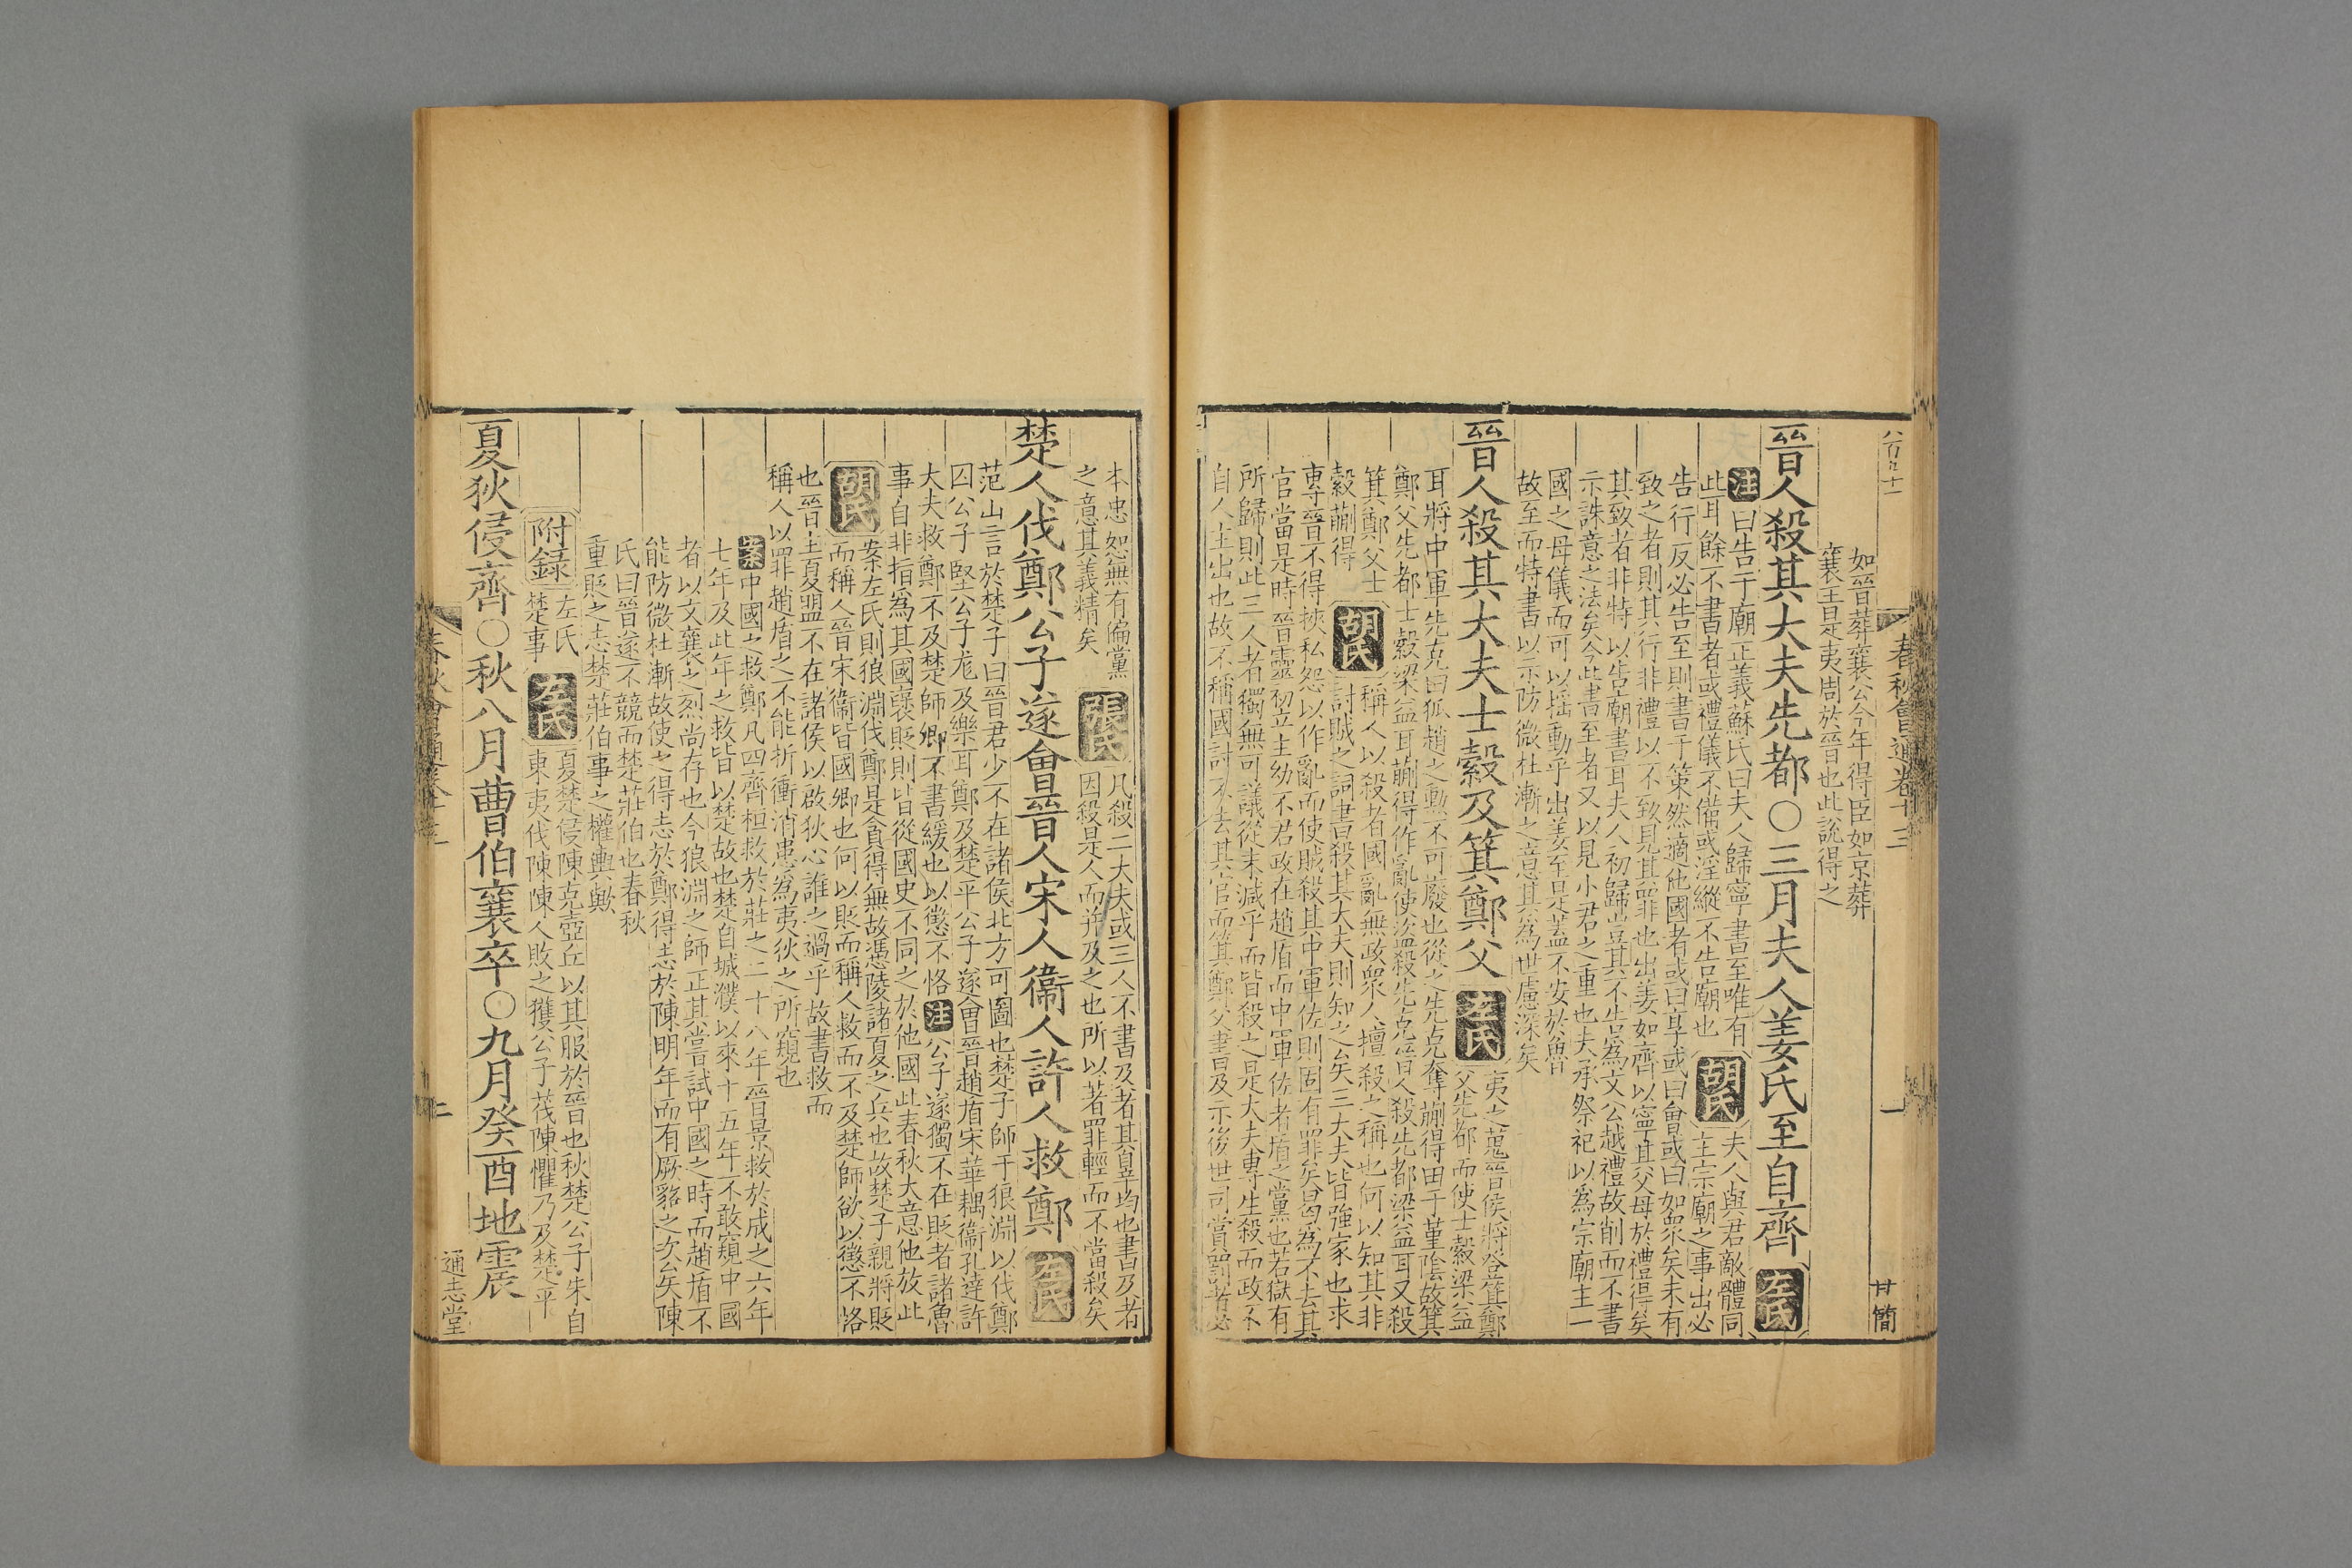 八百七十一
春秋會通卷十三
一
甘簡
如晉葬襄公今年得臣如京葬
襄王是夷周於晉也此說得之
晉人殺其大夫先都〇三月夫人姜氏至自齊左氏
注曰告于廟正義蘇氏曰夫人歸寧書至唯有
此耳餘不書者或禮儀不備或淫縱不告廟也
胡氏
夫人與君敵體同
主宗廟之事出必
告行反必告至則書于策然適他國者或曰享或曰會或曰如衆矣未有
致之者則其行非禮以不致見其罪也出姜如齊以寧其父母於禮得矣
其致者非特以告廟書耳夫人初歸豈其不告爲文公越禮故削而不書
示誅意之法矣今此書至者又以見小君之重也夫承祭祀以爲宗廟主一
國之母儀而可以搖動乎出姜至是蓋不安於魯
故至而特書以示防微杜漸之意其爲世慮深矣
晉人殺其大夫士縠及箕鄭父
左氏
夷之蒐晉侯將登箕鄭
父先都而使士縠梁益
耳將中軍先克曰狐趙之勲不可廢也從之先克奪蒯得田于堇陰故箕
鄭父先都士縠梁益耳蒯得作亂使盜殺先克晉人殺先都梁益耳又殺
箕鄭父士
縠蒯得
胡氏
稱人以殺者國亂無政衆人擅殺之稱也何以知其非
討賊之詞書曰殺其大夫則知之矣三大夫皆強家也求
專晉不得挾私怨以作亂而使賊殺其中軍佐則固有罪矣曷爲不去其
官當是時晉靈初立主幼不君政在趙盾而中軍佐者盾之黨也若獄有
所歸則此三人者獨無可議從末減乎而皆殺之是大夫專生殺而政不
自人主出也故不稱國討不去其官而箕鄭父書及示後世司賞罰者必
本忠恕無有偏黨
之意其義精矣
張氏
凡殺二大夫或三人不書及者其辠均也書及者
因殺是人而并及之也所以著罪輕而不當殺矣
楚人伐鄭公子遂會晉人宋人衞人許人救鄭左氏
范山言於楚子曰晉君少不在諸侯北方可圖也楚子師于狼淵以伐鄭
囚公子堅公子尨及樂耳鄭及楚平公子遂會晉趙盾宋華耦衞孔達許
大夫救鄭不及楚師卿不書緩也以懲不恪注公子遂獨不在貶者諸魯
事自非指爲其國襃貶則皆從國史不同之於他國此春秋大意他放此
胡氏
案左氏則狼淵伐鄭是貪得無故憑陵諸夏之兵也故楚子親將貶
而稱人晉宋衞皆國卿也何以貶而稱人救而不及楚師欲以懲不恪
也晉主夏盟不在諸侯以啟狄心誰之過乎故書救而
稱人以罪趙盾之不能折衝消患爲夷狄之所窺也
案中國之救鄭凡四齊桓救於莊之二十八年晉景救於成之六年
七年及此年之救皆以楚故也楚自城濮以來十五年不敢窺中國
者以文襄之烈尚存也今狼淵之師正其嘗試中國之時而趙盾不
能防微杜漸故使之得志於鄭得志於陳明年而有厥貉之次矣陳
氏曰晉遂不競而楚莊伯也春秋
重貶之志楚莊伯事之權輿歟
附錄
左氏
楚事
左氏
夏楚侵陳克壺丘以其服於晉也秋楚公子朱自
東夷伐陳陳人敗之獲公子茷陳懼乃及楚平
夏狄侵齊〇秋八月曹伯襄卒〇九月癸酉地震
春秋會通卷十三
二
通志堂